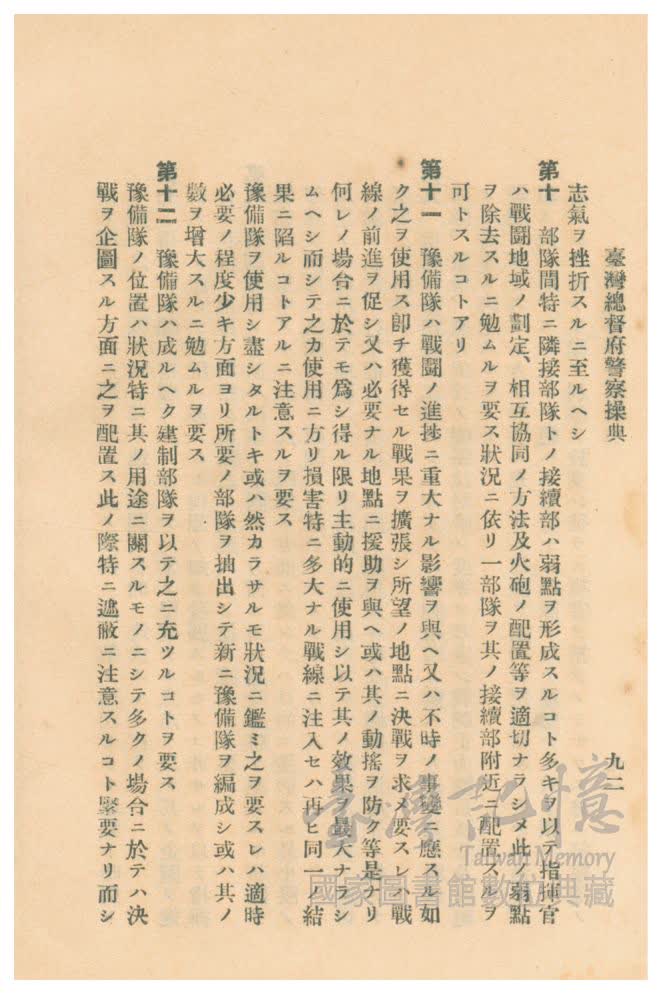 臺灣總督府警察操典
九二
志氣ヲ挫折スルニ至ルヘシ
第十　部隊間特ニ隣接部隊トノ接續部ハ弱點ヲ形成スルコト多キヲ以テ指揮官
ハ戰鬪地域ノ劃定、相互協同ノ方法及火砲ノ配置等ヲ適切ナラシメ此ノ弱點
ヲ除去スルニ勉ムルヲ要ス狀況ニ依リ一部隊ヲ其ノ接續部附近ニ配置スルヲ
可トスルコトアリ
第十一　豫備隊ハ戰鬪ノ進捗ニ重大ナル影響ヲ與ヘ又ハ不時ノ事變ニ應スル如
ク之ヲ使用ス卽チ獲得セル戰果ヲ擴張シ所望ノ地點ニ決戰ヲ求メ要スレハ戰
線ノ前進ヲ促シ又ハ必要ナル地點ニ援助ヲ與ヘ或ハ其ノ動搖ヲ防ク等是ナリ
何レノ場合ニ於テモ爲シ得ル限リ主動的ニ使用シ以テ其ノ效果ヲ最大ナラシ
ムヘシ而シテ之カ使用ニ方リ損害特ニ多大ナル戰線ニ注入セハ再ヒ同一ノ結
果ニ陷ルコトアルニ注意スルヲ要ス
豫備隊ヲ使用シ盡シタルトキ或ハ然カラサルモ狀況ニ鑑ミ之ヲ要スレハ適時
必要ノ程度少キ方面ヨリ所要ノ部隊ヲ抽出シテ新ニ豫備隊ヲ編成シ或ハ其ノ
數ヲ增大スルニ勉ムルヲ要ス
第十二　豫備隊ハ成ルヘク建制部隊ヲ以テ之ニ充ツルコトヲ要ス
豫備隊ノ位置ハ狀況特ニ其ノ用途ニ關スルモノニシテ多クノ場合ニ於テハ決
戰ヲ企圖スル方面ニ之ヲ配置ス此ノ際特ニ遮蔽ニ注意スルコト緊要ナリ而シ
臺灣記憶
Taiwan Memory
國家圖書館數位典藏